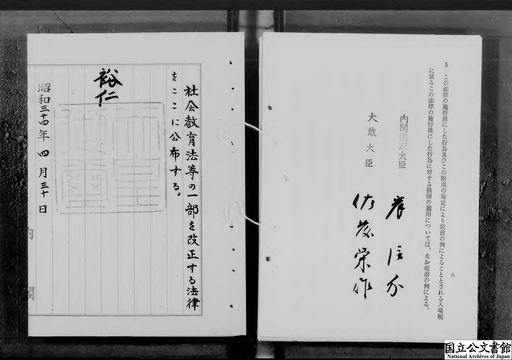 5 この法律の施行前にした行為及びこの附則の規定により従前の例によることとされる入場税
に係るこの法律の施行後にした行為に対する罰則の適用については、なお従前の例による。
八
内閣総理大臣 岸信介
大蔵大臣 佐藤栄作
社会教育法等の一部を改正する法律
をここに公布する。
裕仁
天皇御璽
昭和三十四年四月三十日
内閣
国立公文書館
National Archives of Japan